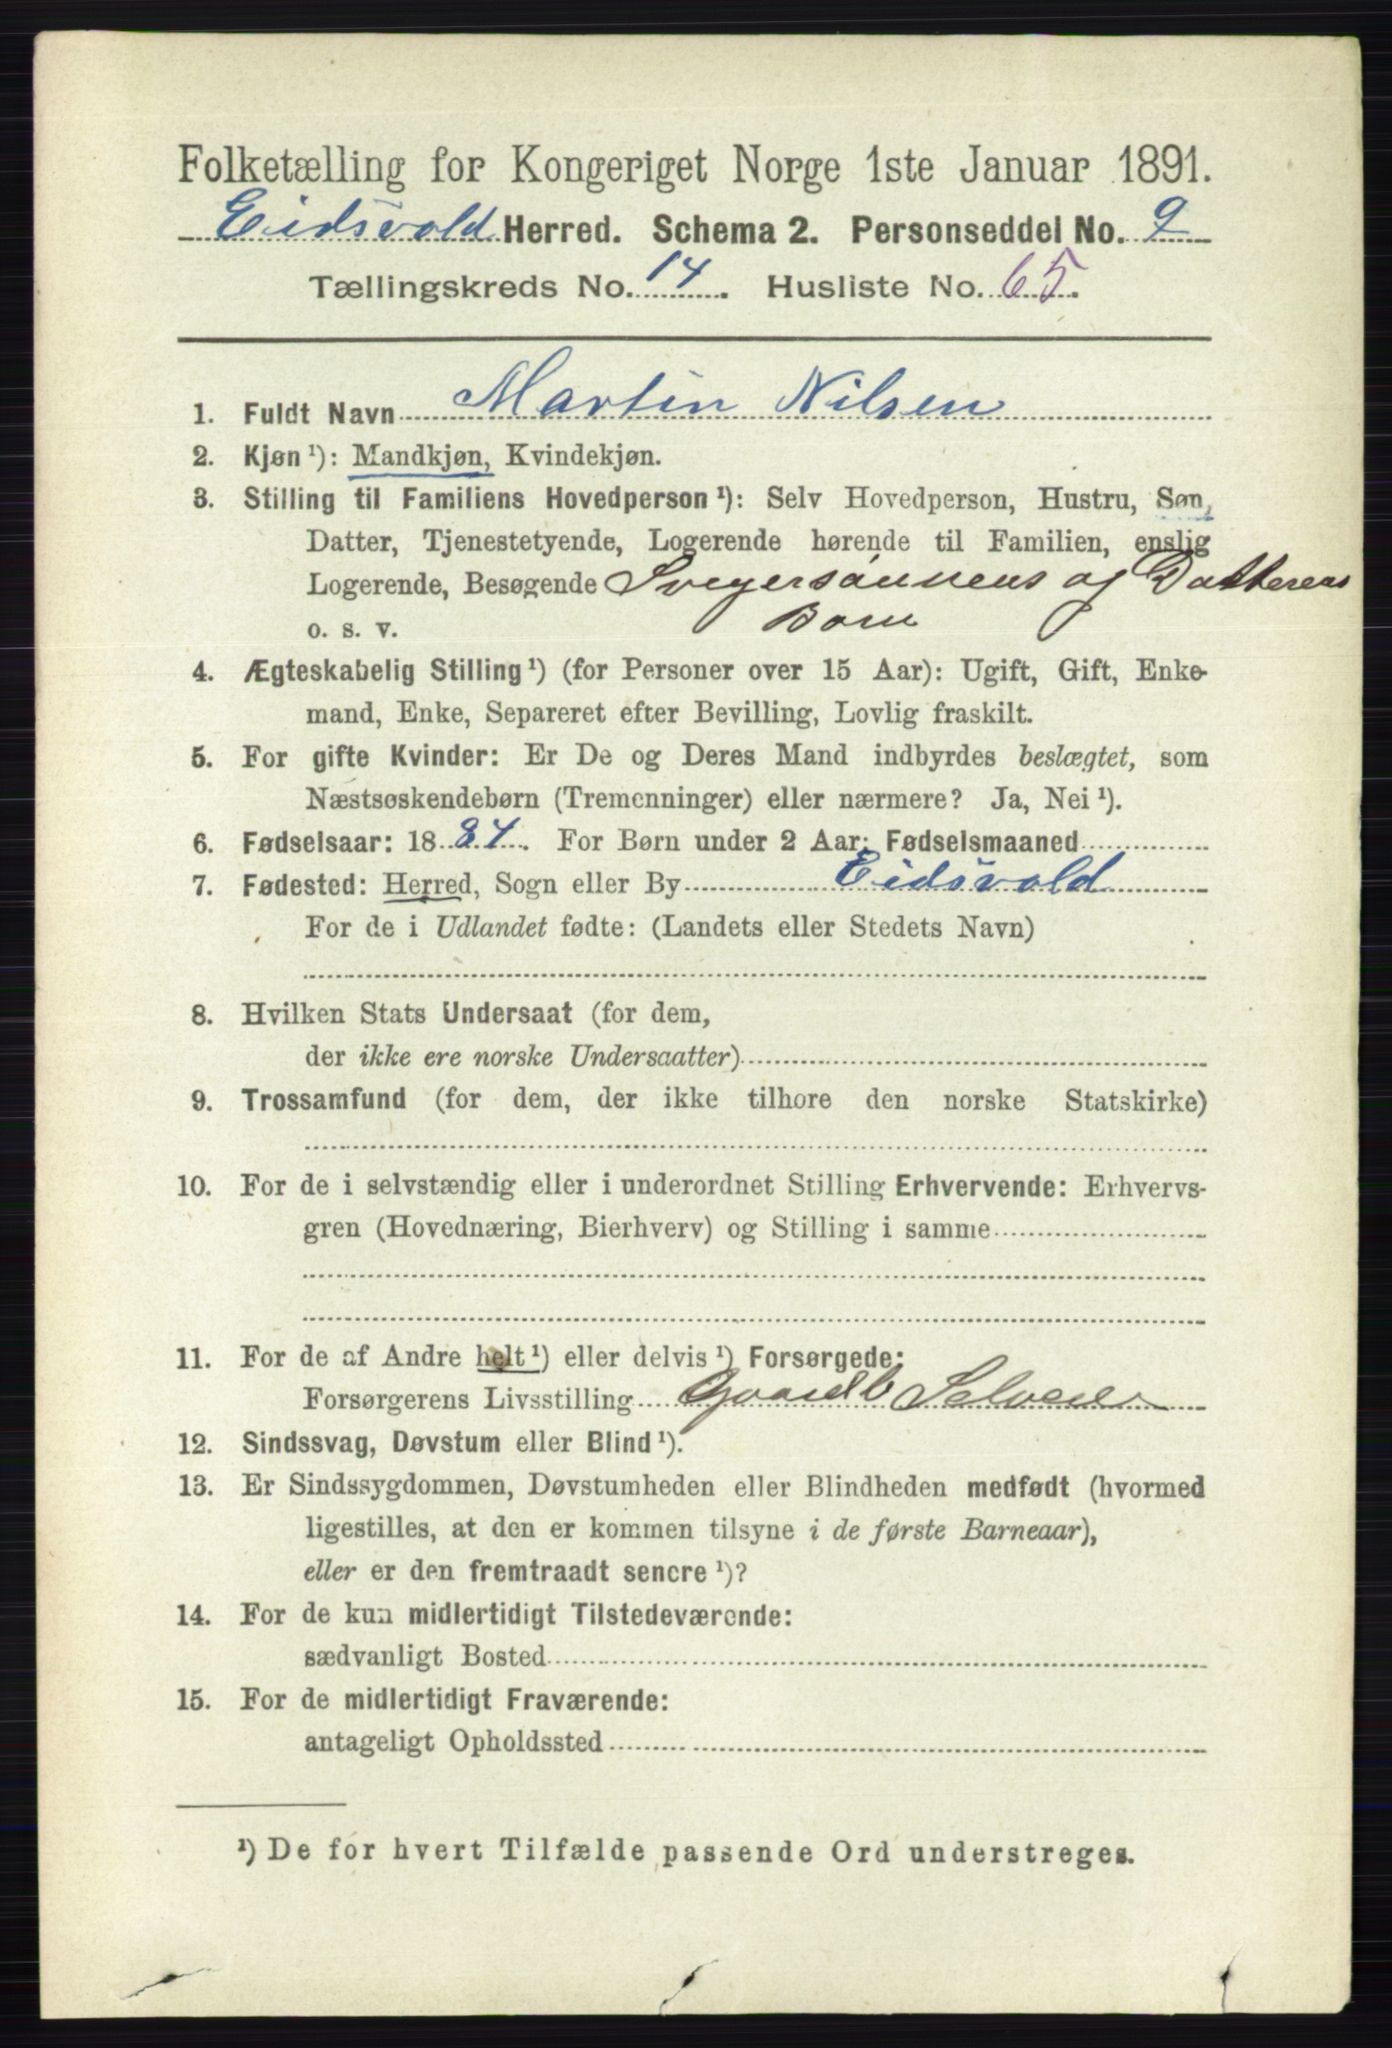 Folketælling for Kongeriget Norge 1ste Januar 1891.
Eidsvold Herred. Schema 2. Personseddel No. 9
Tællingskreds No. 14. Husliste No. 65.
1. Fuldt Navn Martin Nilsen
2. Kjøn ¹): Mandkjøn, Kvindekjøn.
3. Stilling til Familiens Hovedperson ¹): Selv Hovedperson, Hustru, Søn,
Datter, Tjenestetyende, Logerende hørende til Familien, enslig
Logerende, Besøgende Svigersønnens og Datterens
o. s. v. Barn
4. Ægteskabelig Stilling ¹) (for Personer over 15 Aar): Ugift, Gift, Enke-
mand, Enke, Separeret efter Bevilling, Lovlig fraskilt.
5. For gifte Kvinder: Er De og Deres Mand indbyrdes beslægtet, som
Næstsøskendebørn (Tremenninger) eller nærmere? Ja, Nei ¹).
6. Fødselsaar: 1884. For Børn under 2 Aar: Fødselsmaaned
7. Fødested: Herred, Sogn eller By Eidsvold
For de i Udlandet fødte: (Landets eller Stedets Navn)
8. Hvilken Stats Undersaat (for dem,
der ikke ere norske Undersaatter)
9. Trossamfund (for dem, der ikke tilhore den norske Statskirke)
10. For de i selvstændig eller i underordnet Stilling Erhvervende: Erhvervs-
gren (Hovednæring, Bierhverv) og Stilling i samme
11. For de af Andre helt ¹) eller delvis ¹) Forsørgede:
Forsørgerens Livsstilling Gaardb Selveier
12. Sindssvag, Døvstum eller Blind ¹).
13. Er Sindssygdommen, Døvstumheden eller Blindheden medfødt (hvormed
ligestilles, at den er kommen tilsyne i de første Barneaar),
eller er den fremtraadt senere ¹)?
14. For de kun midlertidigt Tilstedeværende:
sædvanligt Bosted
15. For de midlertidigt Fraværende:
antageligt Opholdssted
¹) De for hvert Tilfælde passende Ord understreges.